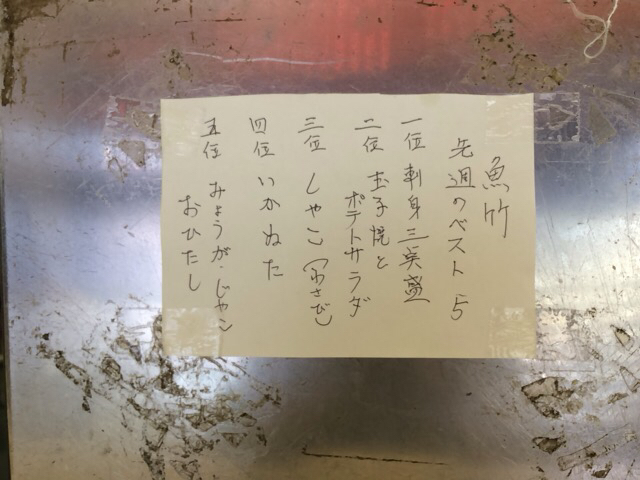 魚竹
先週のベスト5
一位 刺身三点盛
二位 玉子焼と
ポテトサラダ
三位 しゃこ(わさび)
四位 いかぬた
五位 みょうが・じゃこ
おひたし